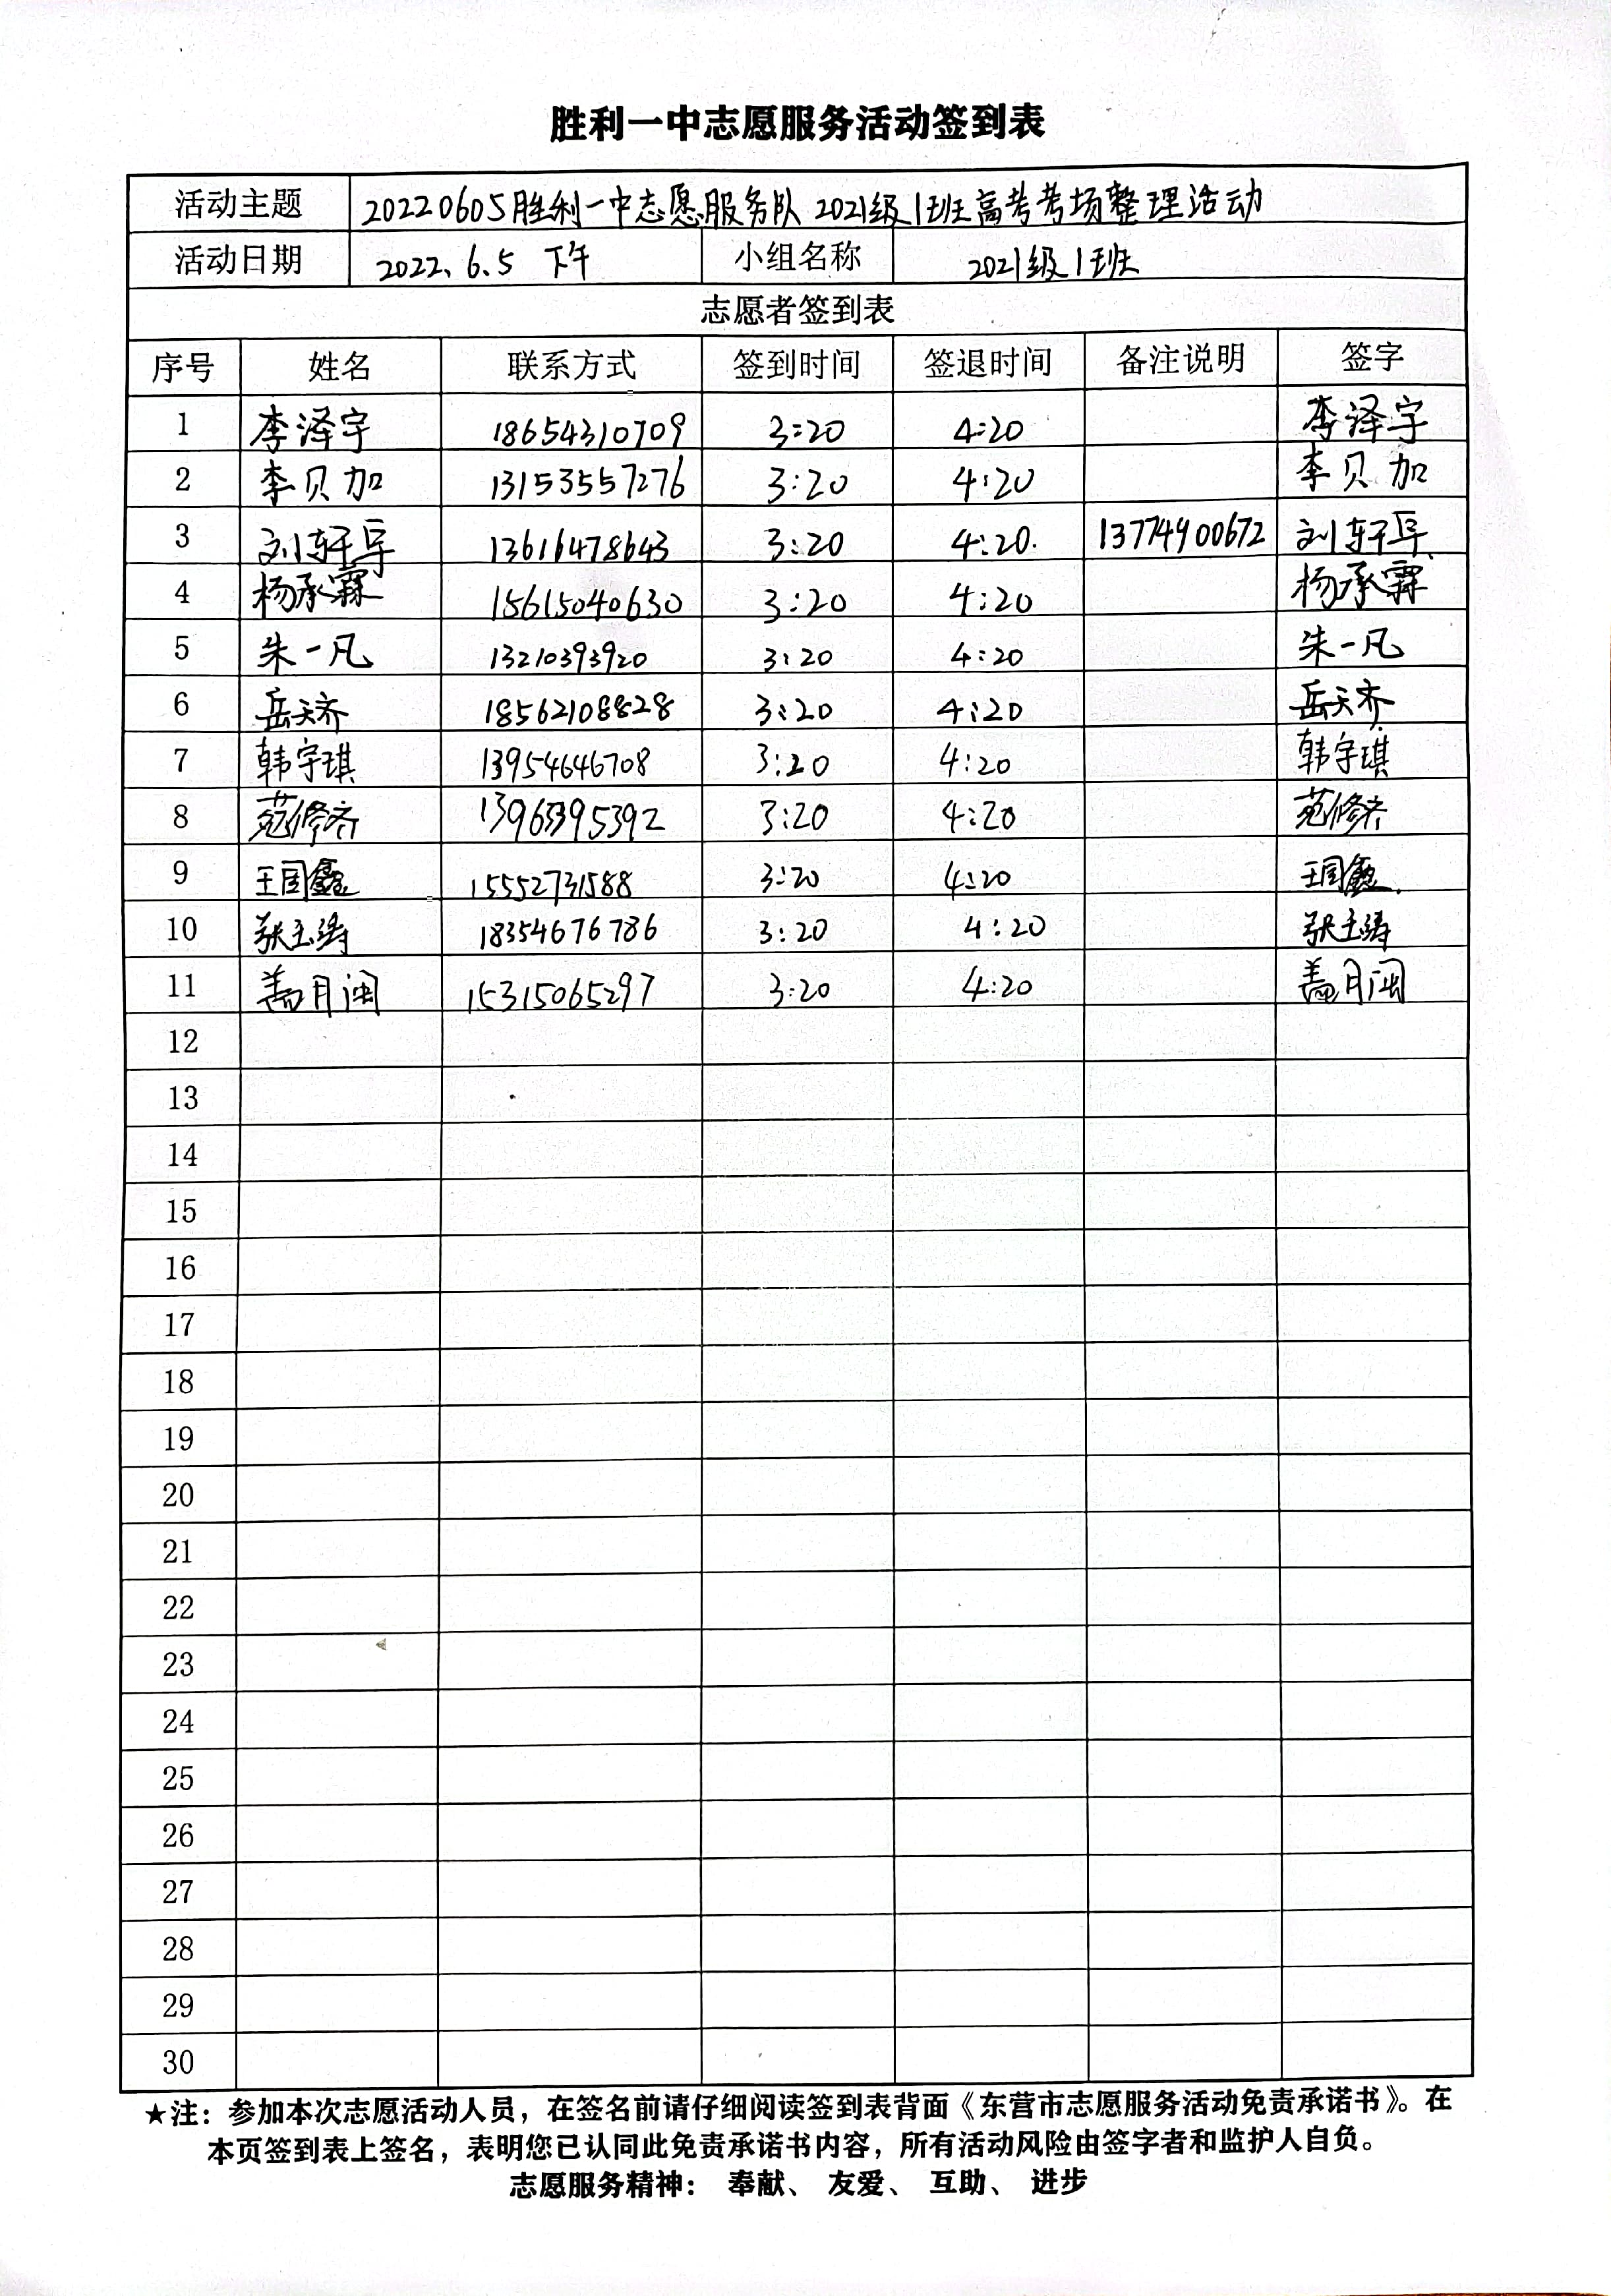 胜利一中志愿服务活动签到表
活动主题 20220605胜利一中志愿服务队2021级1班高考考场整理活动
活动日期 2022.6.5 下午 小组名称 2021级1班
志愿者签到表
序号 姓名 联系方式 签到时间 签退时间 备注说明 签字
1 李泽宇 18654310709 3:20 4:20 李泽宇
2 李贝加 13153557276 3:20 4:20 李贝加
3 刘轩孚 13616478643 3:20 4:20. 13774900672 刘轩孚
4 杨承霖 15615040630 3:20 4:20 杨承霖
5 朱一凡 13210393920 3:20 4:20 朱一凡
6 岳天齐 18562108828 3:20 4:20 岳天齐
7 韩宇琪 13954646708 3:20 4:20 韩宇琪
8 范修齐 13963395392 3:20 4:20 范修齐
9 王国鑫 15552731588 3:20 4:20 王国鑫.
10 张玉涛 18354676786 3:20 4:20 张玉涛
11 盖月闽 15315065297 3:20 4:20 盖月闽
12
13
14
15
16
17
18
19
20
21
22
23
24
25
26
27
28
29
30
★注：参加本次志愿活动人员，在签名前请仔细阅读签到表背面《东营市志愿服务活动免责承诺书》。在
本页签到表上签名，表明您已认同此免责承诺书内容，所有活动风险由签字者和监护人自负。
志愿服务精神： 奉献、 友爱、 互助、 进步